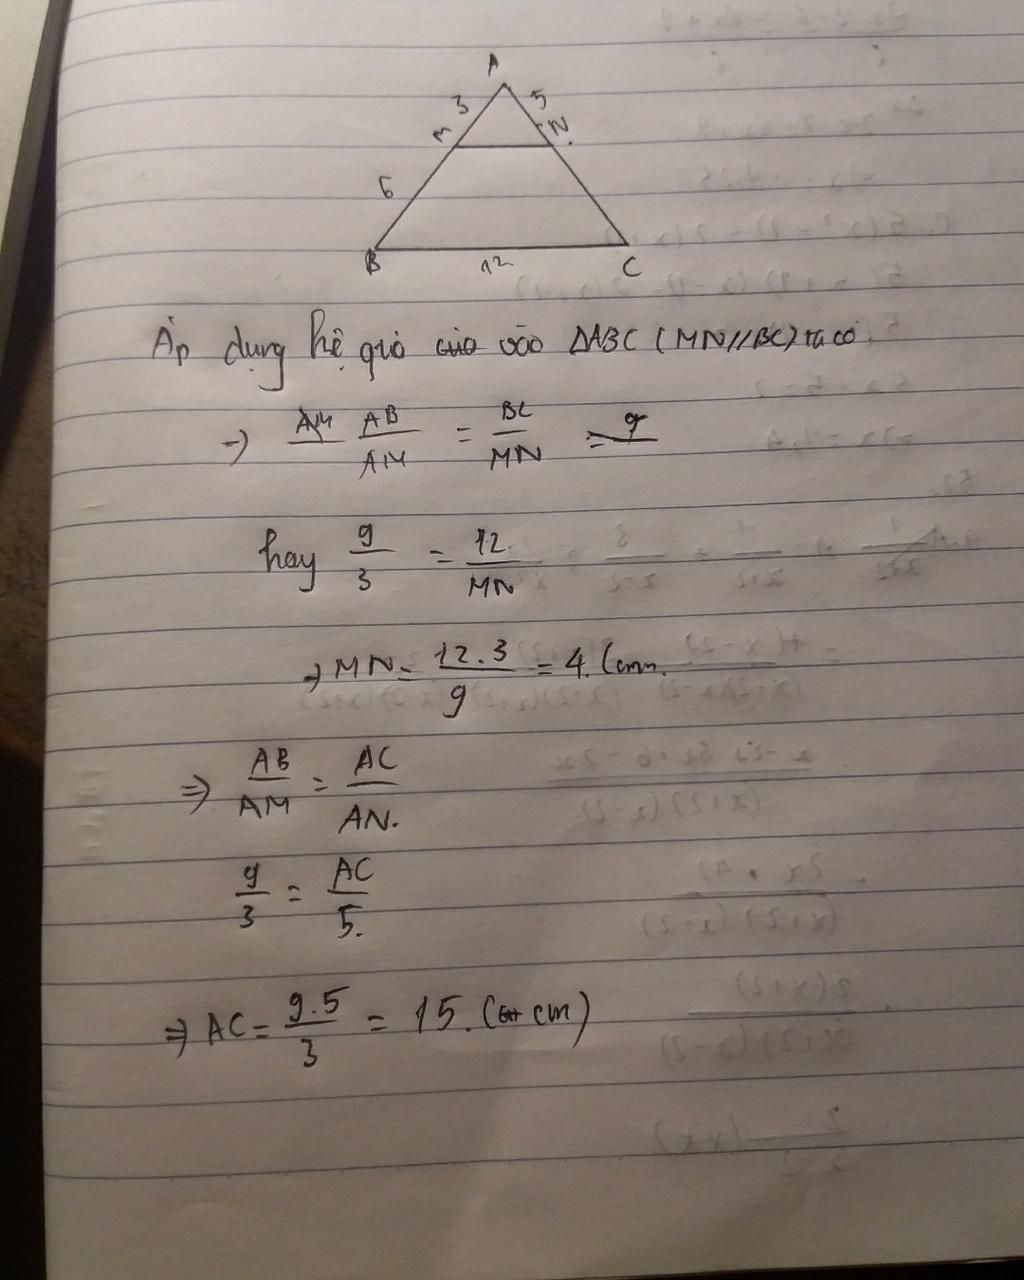 A
3 5
M N.
6
B 12 C
Áp dụng hệ quả của vào ΔABC (MN//BC) ta có
→ AM AB/AM = BC/MN = 9
hay 9/3 = 12./MN
→ MN = 12.3/9 = 4. (cm
⇒ AB/AM = AC/AN.
9/3 = AC/5.
⇒ AC = 9.5/3 = 15. (cm)